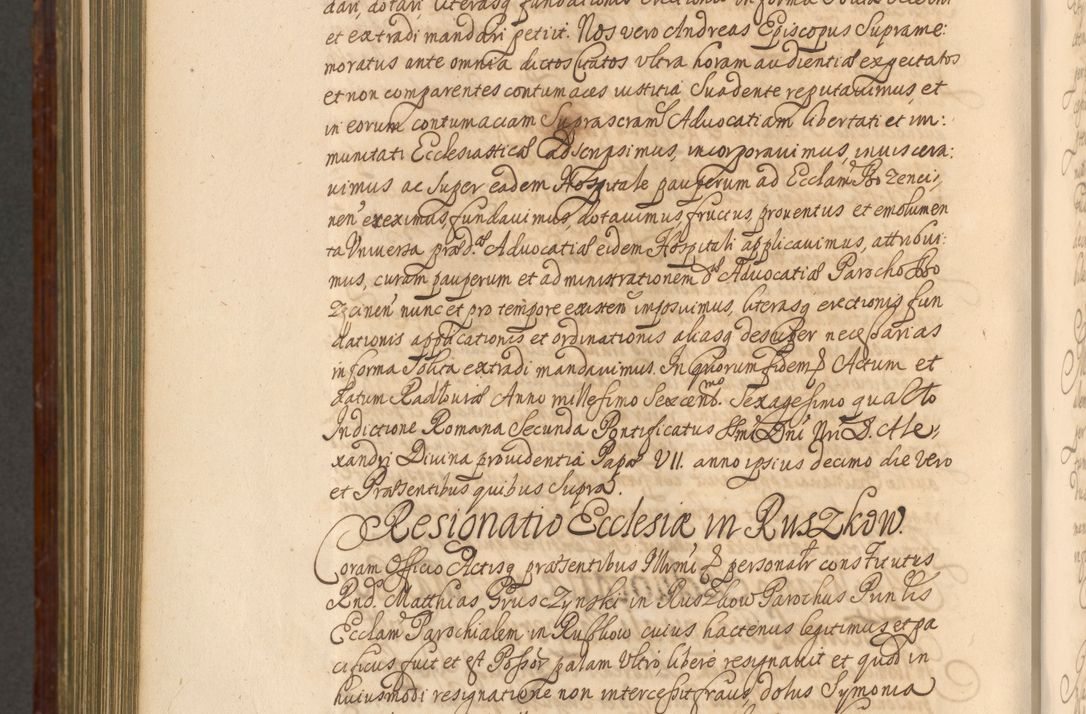 dari, dotari, literasq fundationis erectionis in forma solita
et extradi mandari petiit. Nos vero Andreas Episcopus Suprame:
moratus ante omnia dictos Citatos vltra horam audientiæ expectatos
et non comparentes contumaces iustitia Suadente reputauimus, et
in eorum contumaciam Suprascram Aduocatiam libertati et im:
munitati Ecclesiasticæ adscripsimus, incorporauimus, inuiscera:
uimus ac Super eadem Hospitale pauperum ad Ecclam Bozenci,
nen ereximus, fundauimus, dotauimus, fructus, prouentus et emolumen
ta Vniuersa præd. Aduocatiæ eidem Hospitali applicauimus, attribui:
mus, curam pauperum et administrationem d. Aduocatiæ Parocho Bo
zeinen nunc et pro tempore existen imposuimus, literasq erectionis fun
dationis applicationis et ordinationis aliasq desuper necessarias
in forma Solita extradi mandauimus. In quorum fidem Actum et
datum Radłouiæ Anno millesimo Sexcentmo. Sexagesimo quarto
Indictione Romana Secunda Pontificatus Smi Dni Nri D. Ale,
xandri Diuina prouidentia Papæ VII. anno ipsius decimo die vero
et Præsentibus quibus Supra.
Resignatio Ecclesiæ in Ruszkow.
Coram Officio Actisq præsentibus Illrmi personalr constitutus
Rnd. Matthias Grusczynski in Ruszkow Parochus
Ecclam Parochialem in Ruszkow cuius hactenus legitimus et pa
cificus fuit et est Possor palam Vltro, libere resignabit et quod in
huiusmodi resignatione non intercessit fraus, dolus Symonia